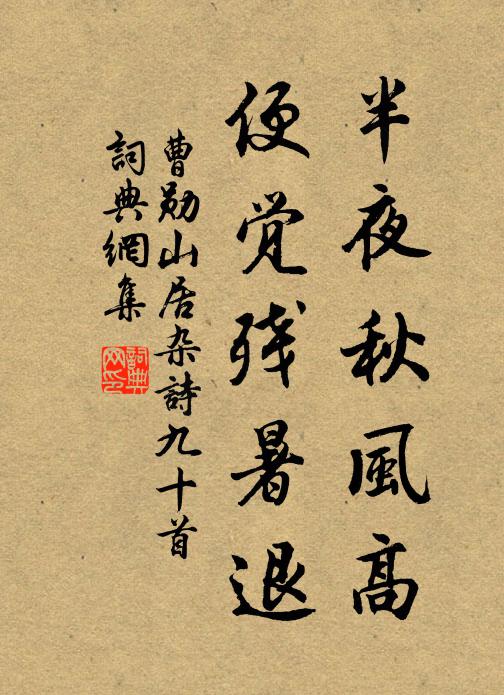 半夜秋風高
便觉残暑退
曹勋山居杂詩九十首
詞典網集
詞典
网印